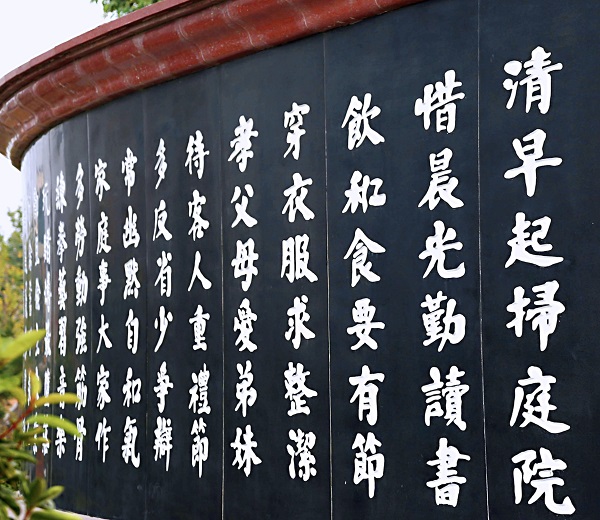 清早起掃庭院
惜晨光勤讀書
飲和食要有節
穿衣服求整潔
孝父母愛弟妹
待客人重禮節
多反省少爭辯
常幽默自和氣
家庭事大家作
多勞動強筋骨
練拳藝習音樂